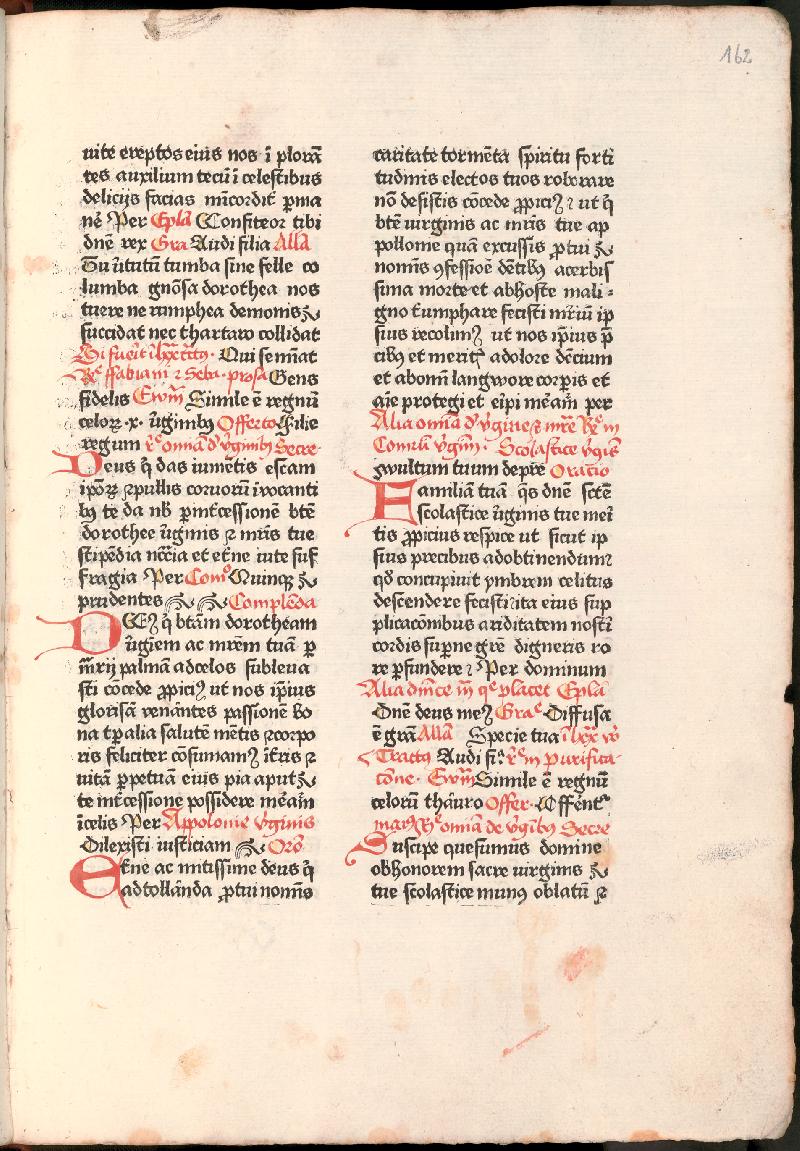 162
uite ereptos eius nos ī plorā
tes auxilium tecū ī celestibus
delicijs facias mīcordit̄ p̄ma
nē Per Ep̄la Confiteor tibi
dn̄e rex Gra Audi filia All̄a
Tu v̄tutū tumba sine felle co
lumba gn̄osa dorothea nos
tuere ne rumphea demonis
succidat nec thartaro collidat
Si fuerit Qui semīat
R̄ ffabiani ⁊ Seba · prosa Gens
fidelis Ewm̄ Simile ē regnū
celoꝝ · x · v̄ginibꝫ Offerto Filie
regum r̄ om̄ia d' v̄ginibꝫ Secre
Deus q̄ das iumētis escam
ip̄oꝝ ⁊ pullis coruorū īvocanti
bꝫ te da nb̄ p̄ int̄cessionē btē
dorothee v̄ginis ⁊ mr̄is tue
stipēdia nc̄cia et et̄ne uite suf
fragia Per Com̄o Quinqꝫ
prudentes Complēda
DEꝰ q̄ btām dorotheam
v̄giem ac mr̄em tuā p̄
mr̄ij palmā ad celos subleua
sti cōcede ꝓpiciꝰ ut nos ip̄ius
glorīsā venāntes passionē bo
na tp̄alia salutē mētis ⁊ corpo
ris feliciter cōsumamꝰ īt̄ris ⁊
uitā p̄petuā eius pia aput
te int̄cessione possidere meām̄
ī celis Per Appolonie v̄ginis
Dilexisti iusticiam Orō
Et̄ne ac mitissime deus q̄
ad tollānda ꝓ tui nomīs
caritate tormēta spiritu forti
tudinis electos tuos roborare
nō desistis cōcede ꝓpiciꝰ ⁊ ut q̄
btē uirginis ac mr̄is tue ap
pollonie quā excussis ꝓ tui
nomīs ꝯfessiōe dētibꝫ acerbis
sima morte et ab hoste mali
gno t̄umphare fecisti mr̄iū ip
sius recolimꝰ ut nos ip̄ius p̄
cibꝫ et merit̄ a dolore dēcium
et abomī langwore corp̄is et
aīe protegi et eipi meām̄ per
Alia om̄ia d' v̄gine ⁊ mr̄e R̄ in
Com̄uī v̄gim̄ · Scolastice v̄gīs
wultum tuum dep̄re Oracio
Familiā tuā q̄s dn̄e sctē
scolastice v̄ginis tue meri
tis ꝓpicius respice ut sicut ip
sius precibus ad obtinendum
qd̄ concupiuit ymbrem celitus
descendere fecisti ita eius sup
plicacōnibus ariditatem nostri
cordis sup̄ne grē digneris ro
re p̄fundere ⁊ Per dominum
Alia d̄mce placet Ep̄la
Dn̄e deus meꝰ Gra Diffusa
ē grā All̄a Specie tua ī lxx vō
Tractꝰ Audi fi r̄ in purifica
cōne · Ewm̄ Simile ē regnū
celorū thāuro Offer · Offent̄
om̄ia de v̄gībꝫ Secre
Suscipe quesumus domine
ob honorem sacre uirginis
tue scolastice munꝰ oblatū ⁊